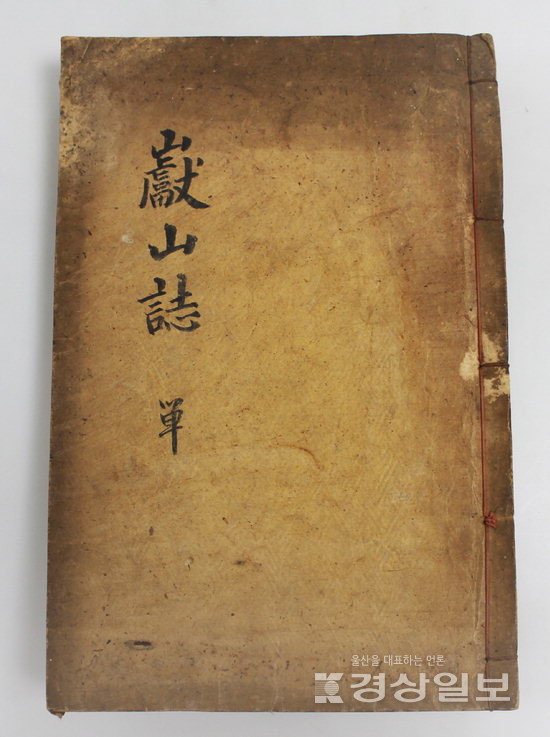 巘山誌
単
울산을 대표하는 언론
경상일보